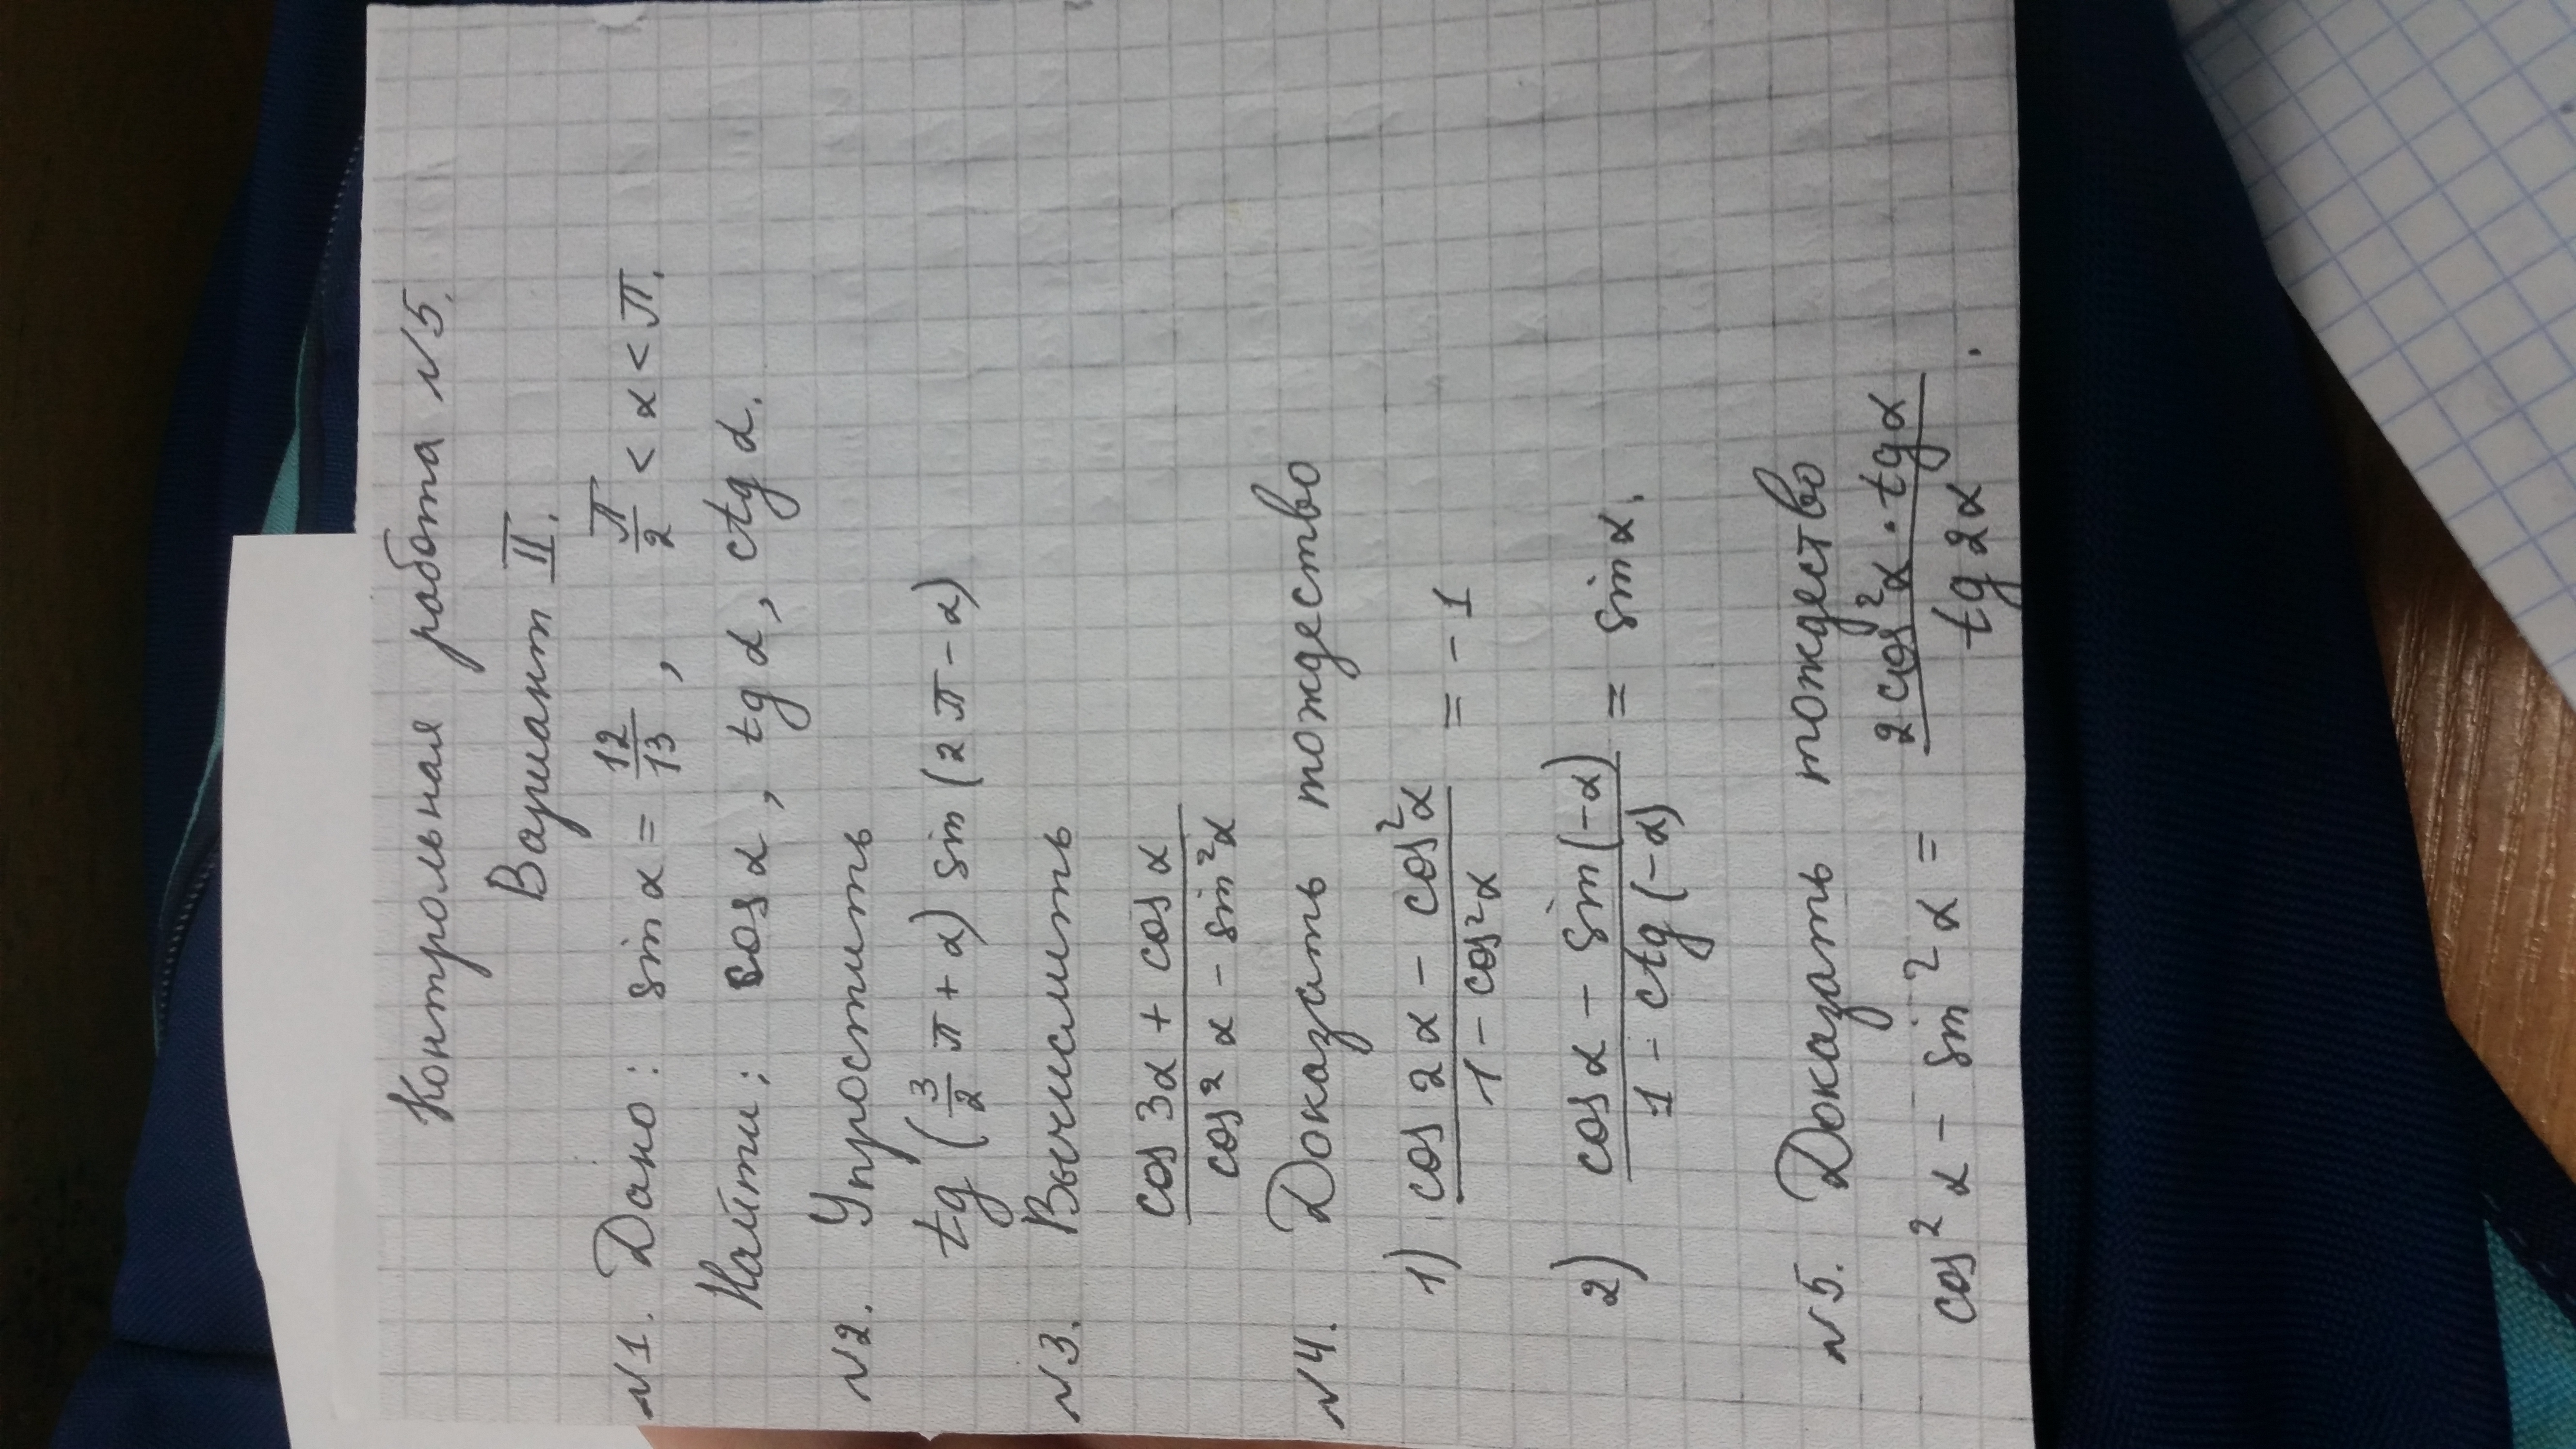 Контрольная работа №5.
Вариант II.
№1. Дано: sin α = 12/13, π/2 < α < π.
Найти: cos α, tg α, ctg α.
№2. Упростить
tg (3/2 π + α) sin (2π - α)
№3. Вычислить
(cos 3α + cos α)/(cos² α - sin² α)
№4. Доказать тождество
1) (cos 2α - cos² α)/(1 - cos² α) = -1
2) (cos α - sin (-α))/(1 - ctg (-α)) = sin α.
№5. Доказать тождество
cos² α - sin² α = (2 cos² α · tg α)/(tg 2α).